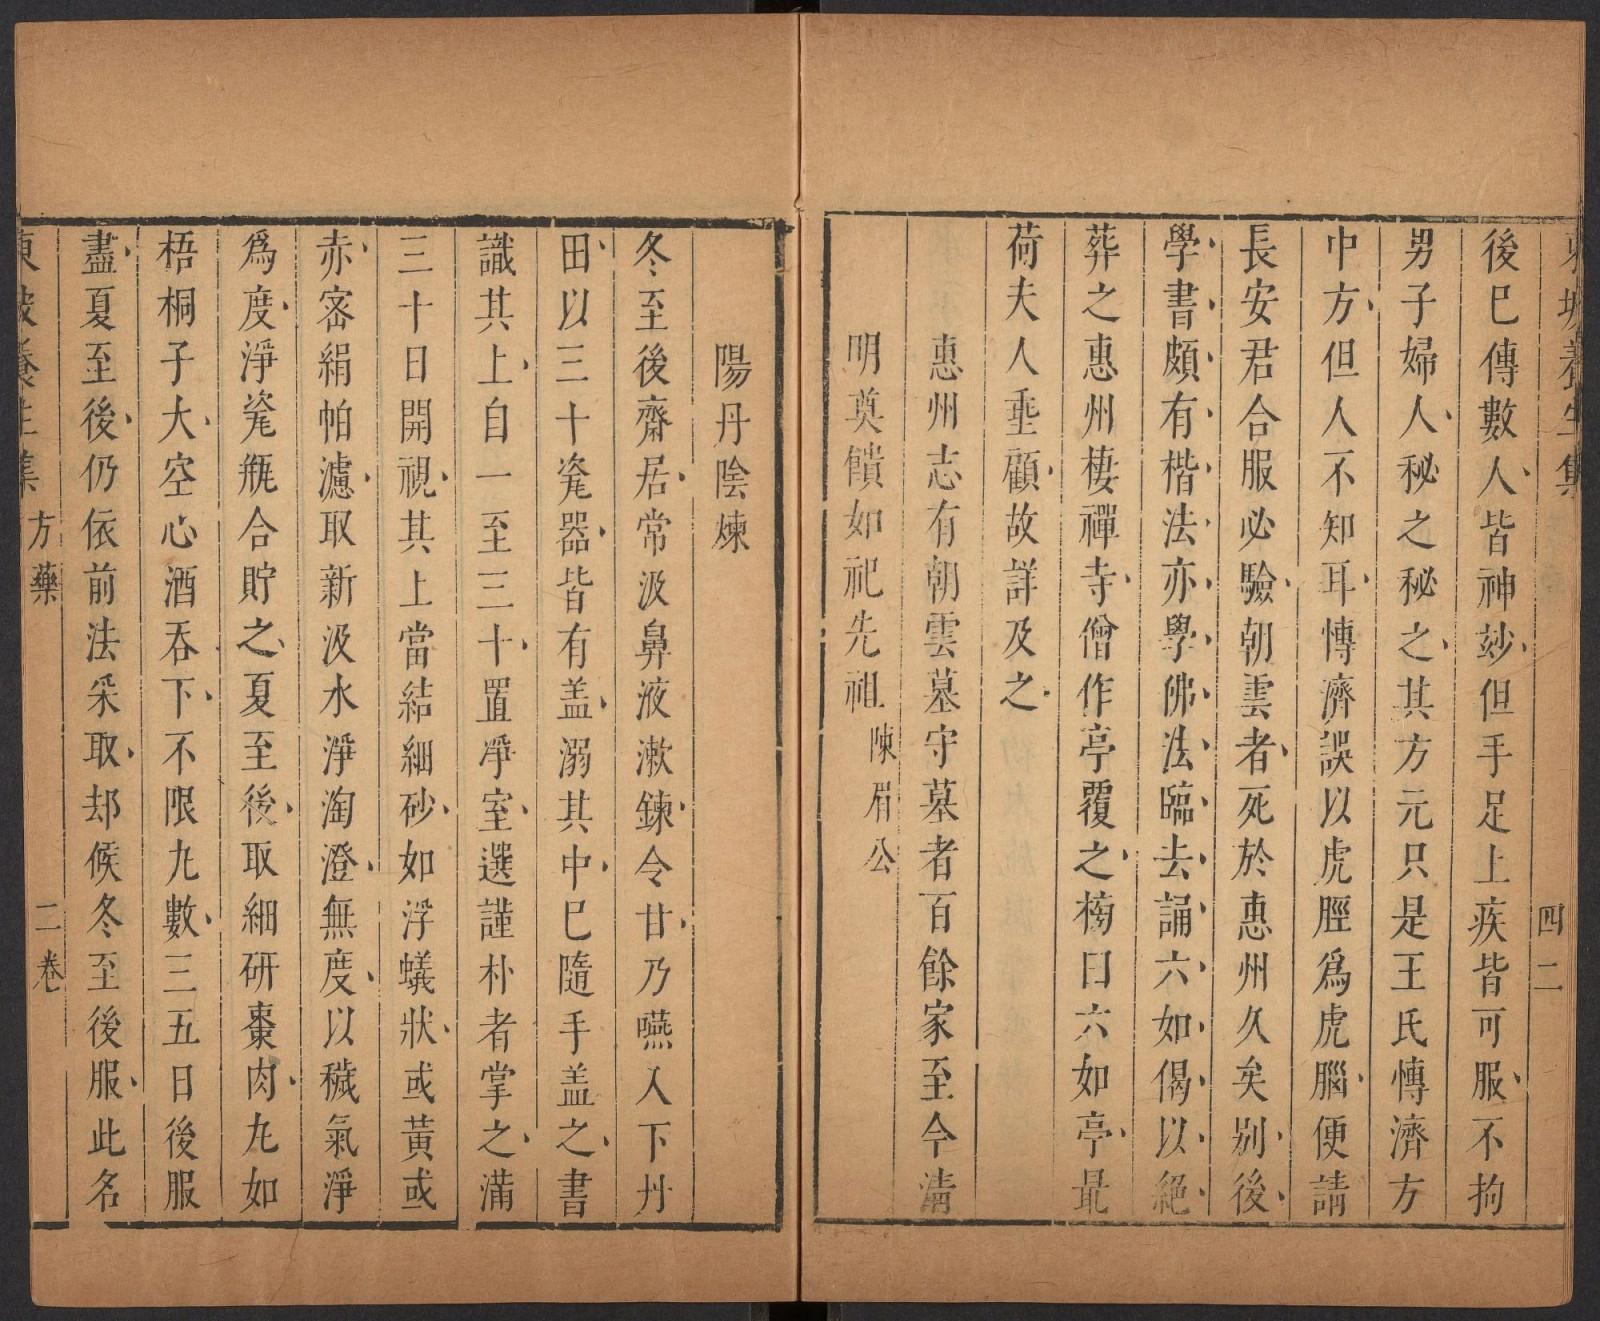 東坡養生集
四二
後巳傳數人皆神妙但手足上疾皆可服不拘
男子婦人秘之秘之其方元只是王氏慱濟方
中方但人不知耳慱濟誤以虎脛爲虎腦便請
長安君合服必驗朝雲者死於惠州久矣别後
學書頗有楷法亦學佛法臨去誦六如偈以絕
葬之惠州棲禪寺僧作亭覆之榜曰六如亭最
荷夫人垂顧故詳及之
惠州志有朝雲墓守墓者百餘家至今清
明奠饋如祀先祖陳眉公
陽丹陰煉
冬至後齋居常汲鼻液漱鍊令甘乃嚥入下丹
田以三十瓷器皆有盖溺其中巳隨手盖之書
識其上自一至三十置凈室選謹朴者掌之滿
三十日開視其上當結細砂如浮蟻狀或黃或
赤宻絹帕濾取新汲水淨淘澄無度以穢氣淨
爲度淨瓷瓶合貯之夏至後取細研棗肉九如
梧桐子大空心酒吞下不限九數三五日後服
盡夏至後仍依前法采取却候冬至後服此名
東坡養生集 方藥 二卷